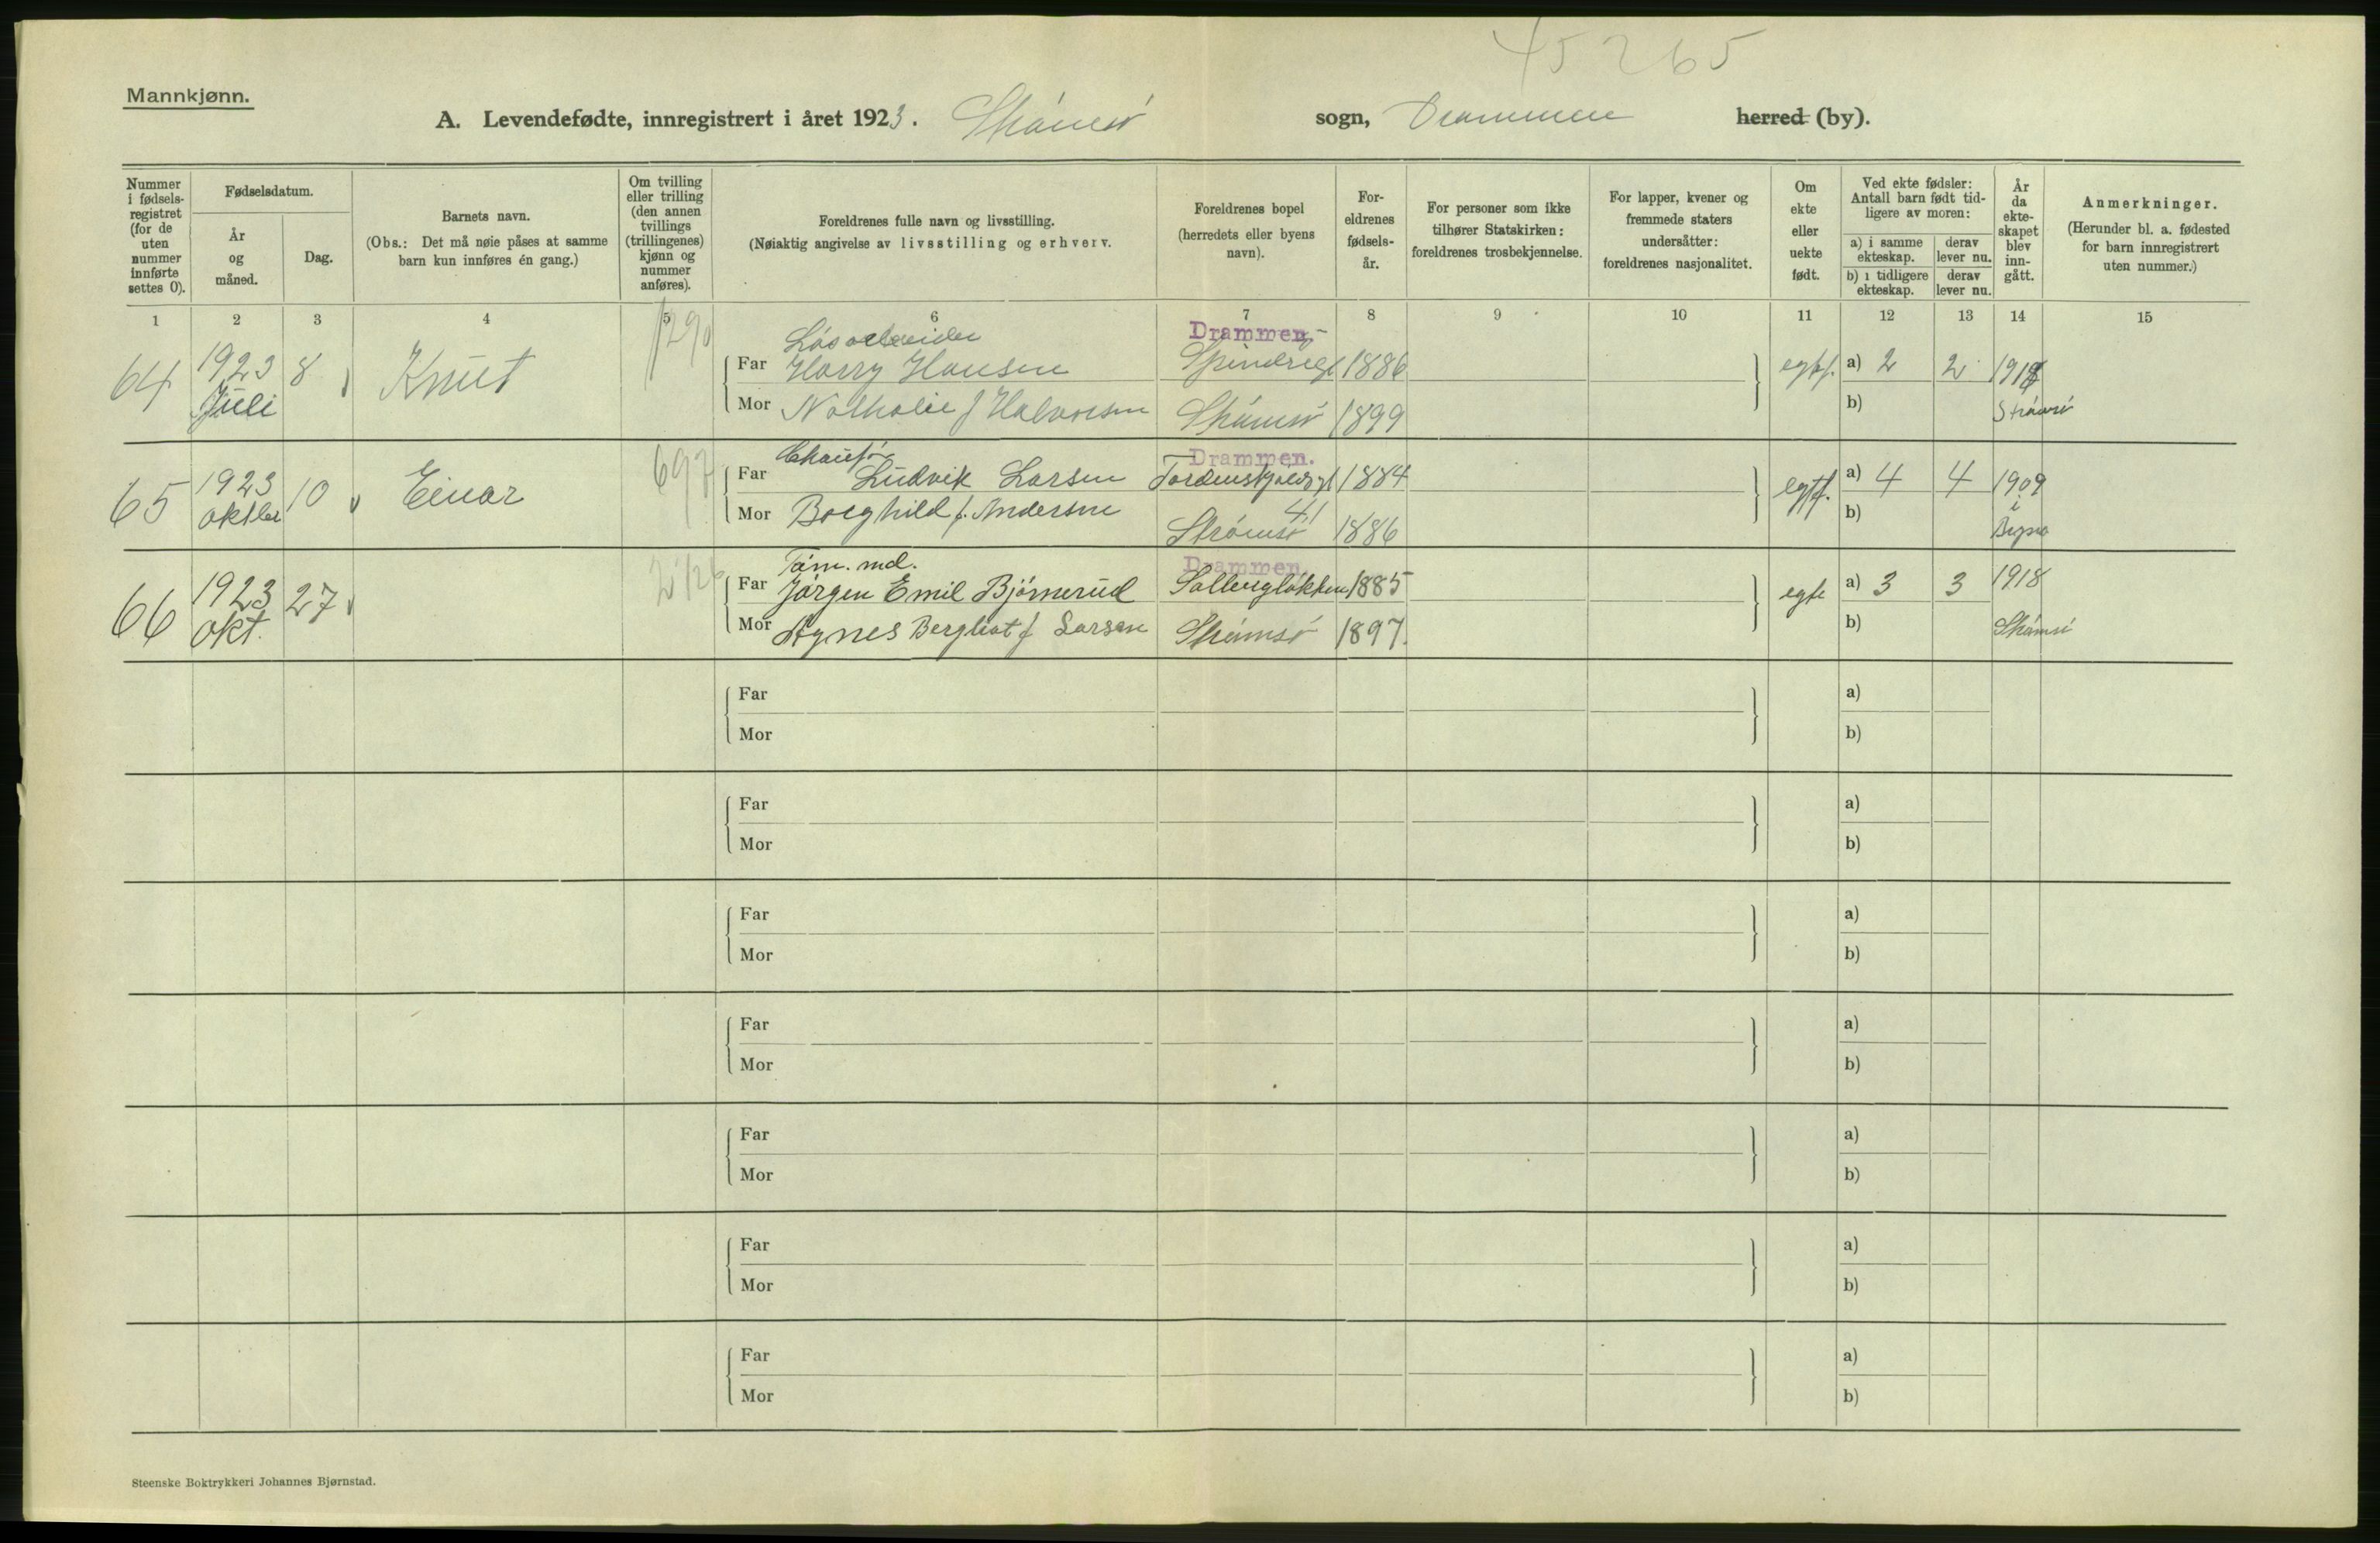 45265
Mannkjønn.
A. Levendefødte, innregistrert i året 1923. Strømsö sogn, Drammen herred (by).
Nummer i fødselsregistret (for de uten nummer innførte settes 0).
Fødselsdatum.
År og måned.
Dag.
Barnets navn.
(Obs.: Det må nøie påses at samme barn kun innføres én gang.)
Om tvilling eller trilling (den annen tvillings (trillingenes) kjønn og nummer anføres).
Foreldrenes fulle navn og livsstilling.
(Nøiaktig angivelse av livsstilling og erhverv.
Foreldrenes bopel (herredets eller byens navn).
Foreldrenes fødselsår.
For personer som ikke tilhører Statskirken: foreldrenes trosbekjennelse.
For lapper, kvener og fremmede staters undersåtter: foreldrenes nasjonalitet.
Om ekte eller uekte født.
Ved ekte fødsler: Antall barn født tidligere av moren:
a) i samme ekteskap.
derav lever nu.
b) i tidligere ekteskap.
derav lever nu.
År da ekteskapet blev inngått.
Anmerkninger.
(Herunder bl. a. fødested for barn innregistrert uten nummer.)
1 2 3 4 5 6 7 8 9 10 11 12 13 14 15
64 1923 Juli 8 Knut 1290
Løsarbeider
Far Harry Hansen Drammen. 1886 a) 2 2
Mor Nathalie f Halvorsen Strømsö 1899 b) Strømsö
65 1923 oktber 10 Einar
Chaufør
Far Ludvik Larsen Drammen. Tordenskjoldsgt 41 1884 egtf. a) 4 4 1909
Mor Borghild f. Andersen Strømsö 1886 b) i
66 1923 Okt. 27 2126
Tøm. md.
Far Jörgen Emil Björnerud Drammen. Solbergløkken 1885 egte a) 3 3 1918
Mor Agnes Bergliot f Larsen Strømsö 1897. b) Strømsö
Far a)
Mor b)
Far a)
Mor b)
Far a)
Mor b)
Far a)
Mor b)
Far a)
Mor b)
Far a)
Mor b)
Far a)
Mor b)
Steenske Boktrykkeri Johannes Bjørnstad.